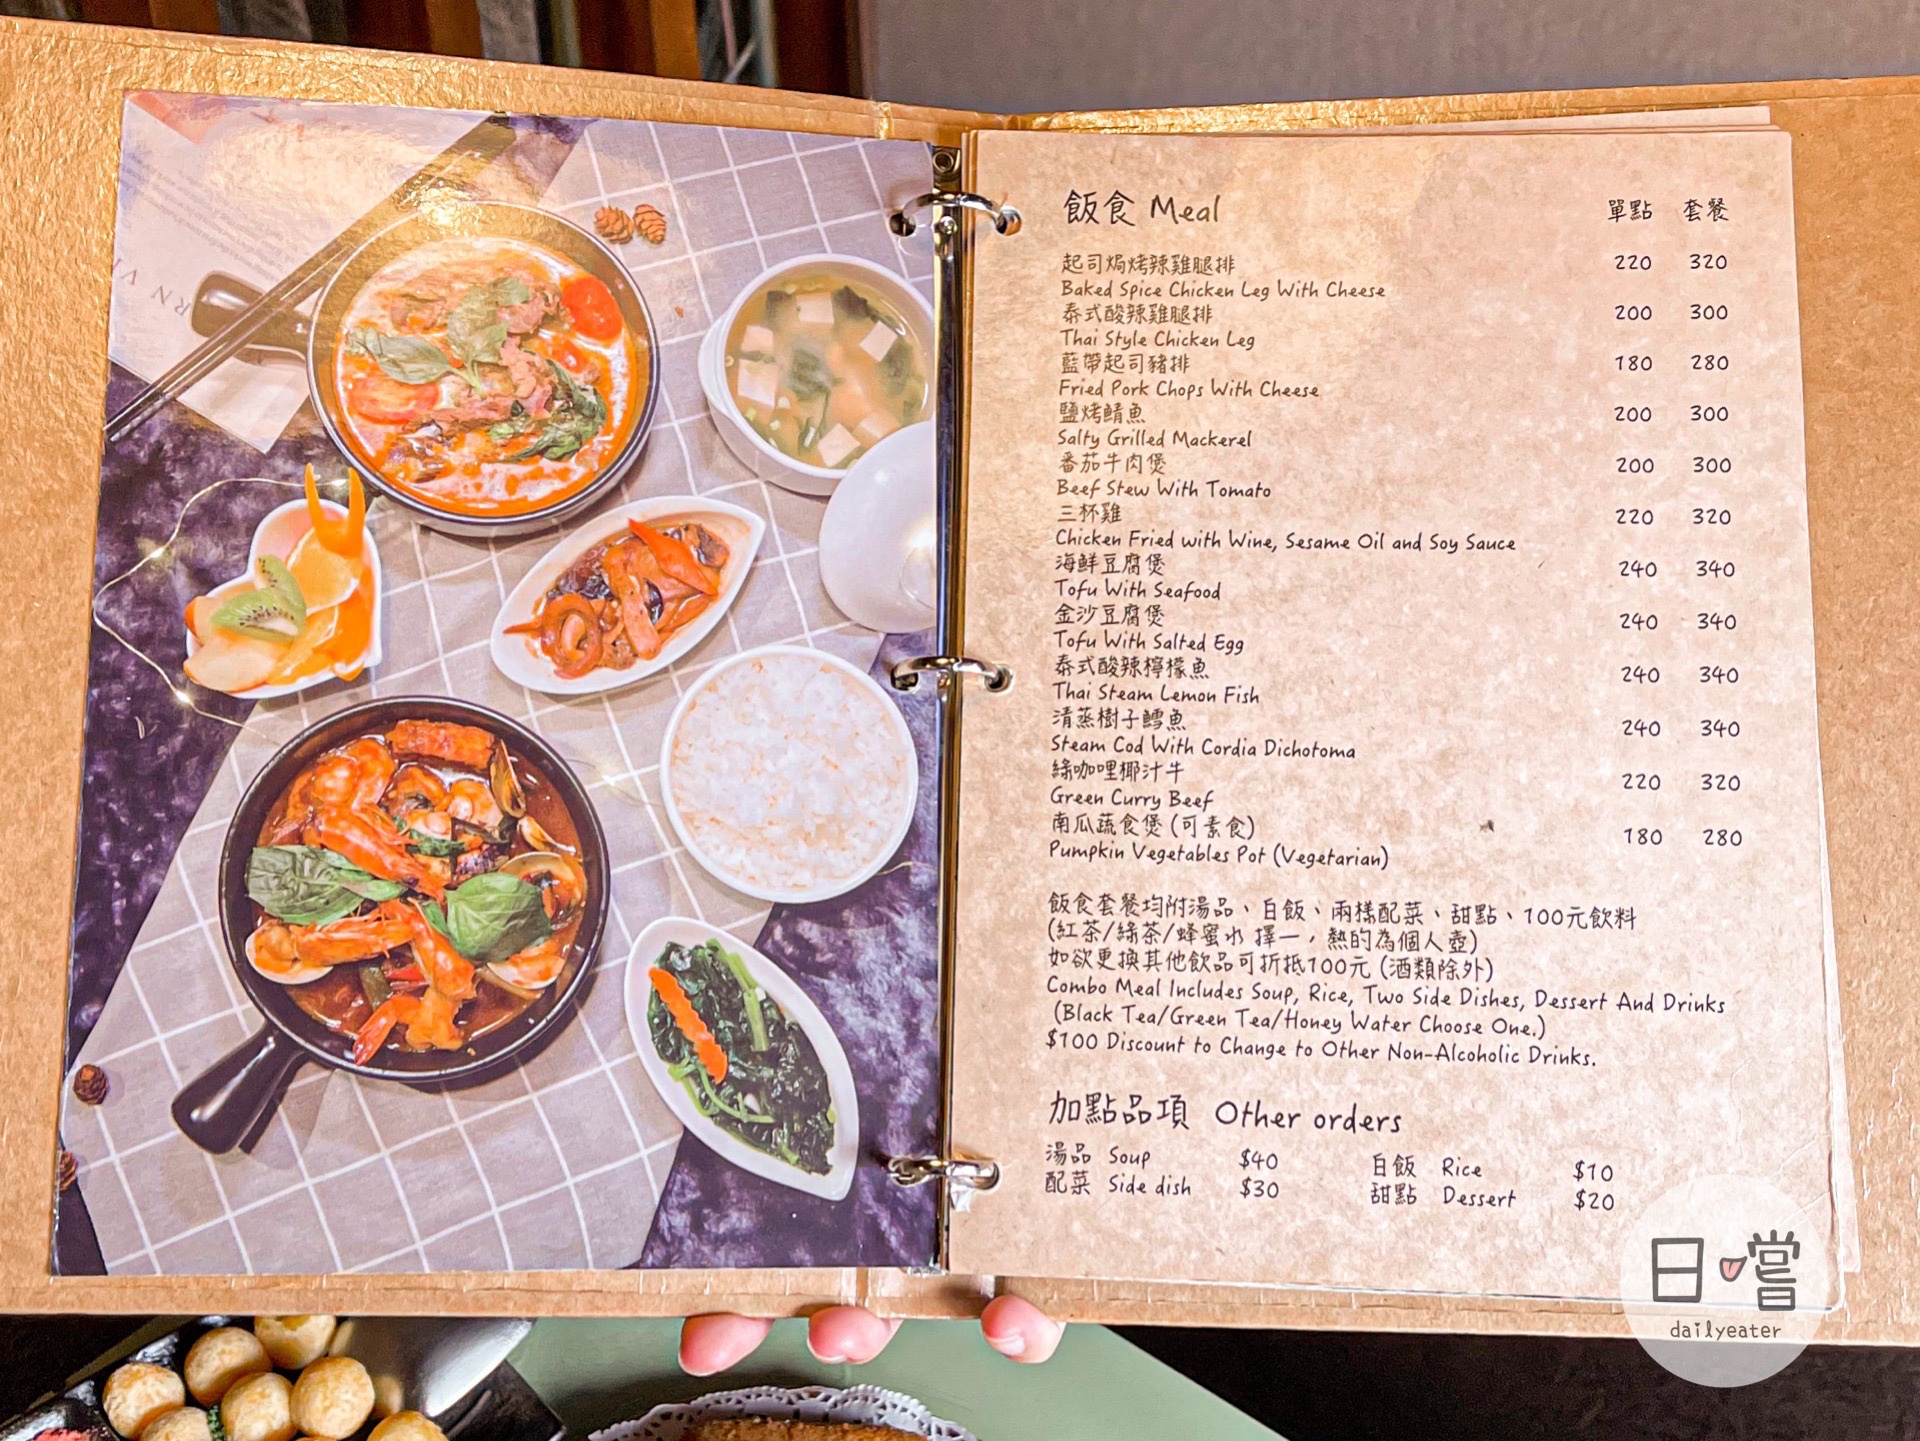 飯食 Meal 單點 套餐
起司焗烤辣雞腿排 220 320
Baked Spice Chicken Leg With Cheese
泰式酸辣雞腿排 200 300
Thai Style Chicken Leg
藍帶起司豬排 180 280
Fried Pork Chops With Cheese
鹽烤鯖魚 200 300
Salty Grilled Mackerel
番茄牛肉煲 200 300
Beef Stew With Tomato
三杯雞 220 320
Chicken Fried with Wine, Sesame Oil and Soy Sauce
海鮮豆腐煲 240 340
Tofu With Seafood
金沙豆腐煲 240 340
Tofu With Salted Egg
泰式酸辣檸檬魚 240 340
Thai Steam Lemon Fish
清蒸樹子鱈魚 240 340
Steam Cod With Cordia Dichotoma
綠咖哩椰汁牛 220 320
Green Curry Beef
南瓜蔬食煲 (可素食) 180 280
Pumpkin Vegetables Pot (Vegetarian)
飯食套餐均附湯品、白飯、兩樣配菜、甜點、100元飲料
(紅茶/綠茶/蜂蜜水 擇一，熱的為個人壺)
如欲更換其他飲品可折抵100元 (酒類除外)
Combo Meal Includes Soup, Rice, Two Side Dishes, Dessert And Drinks
(Black Tea/Green Tea/Honey Water Choose One.)
$100 Discount to Change to Other Non-Alcoholic Drinks.
加點品項 Other orders
湯品 Soup $40 白飯 Rice $10
配菜 Side dish $30 甜點 Dessert $20
日嚐
dailyeater